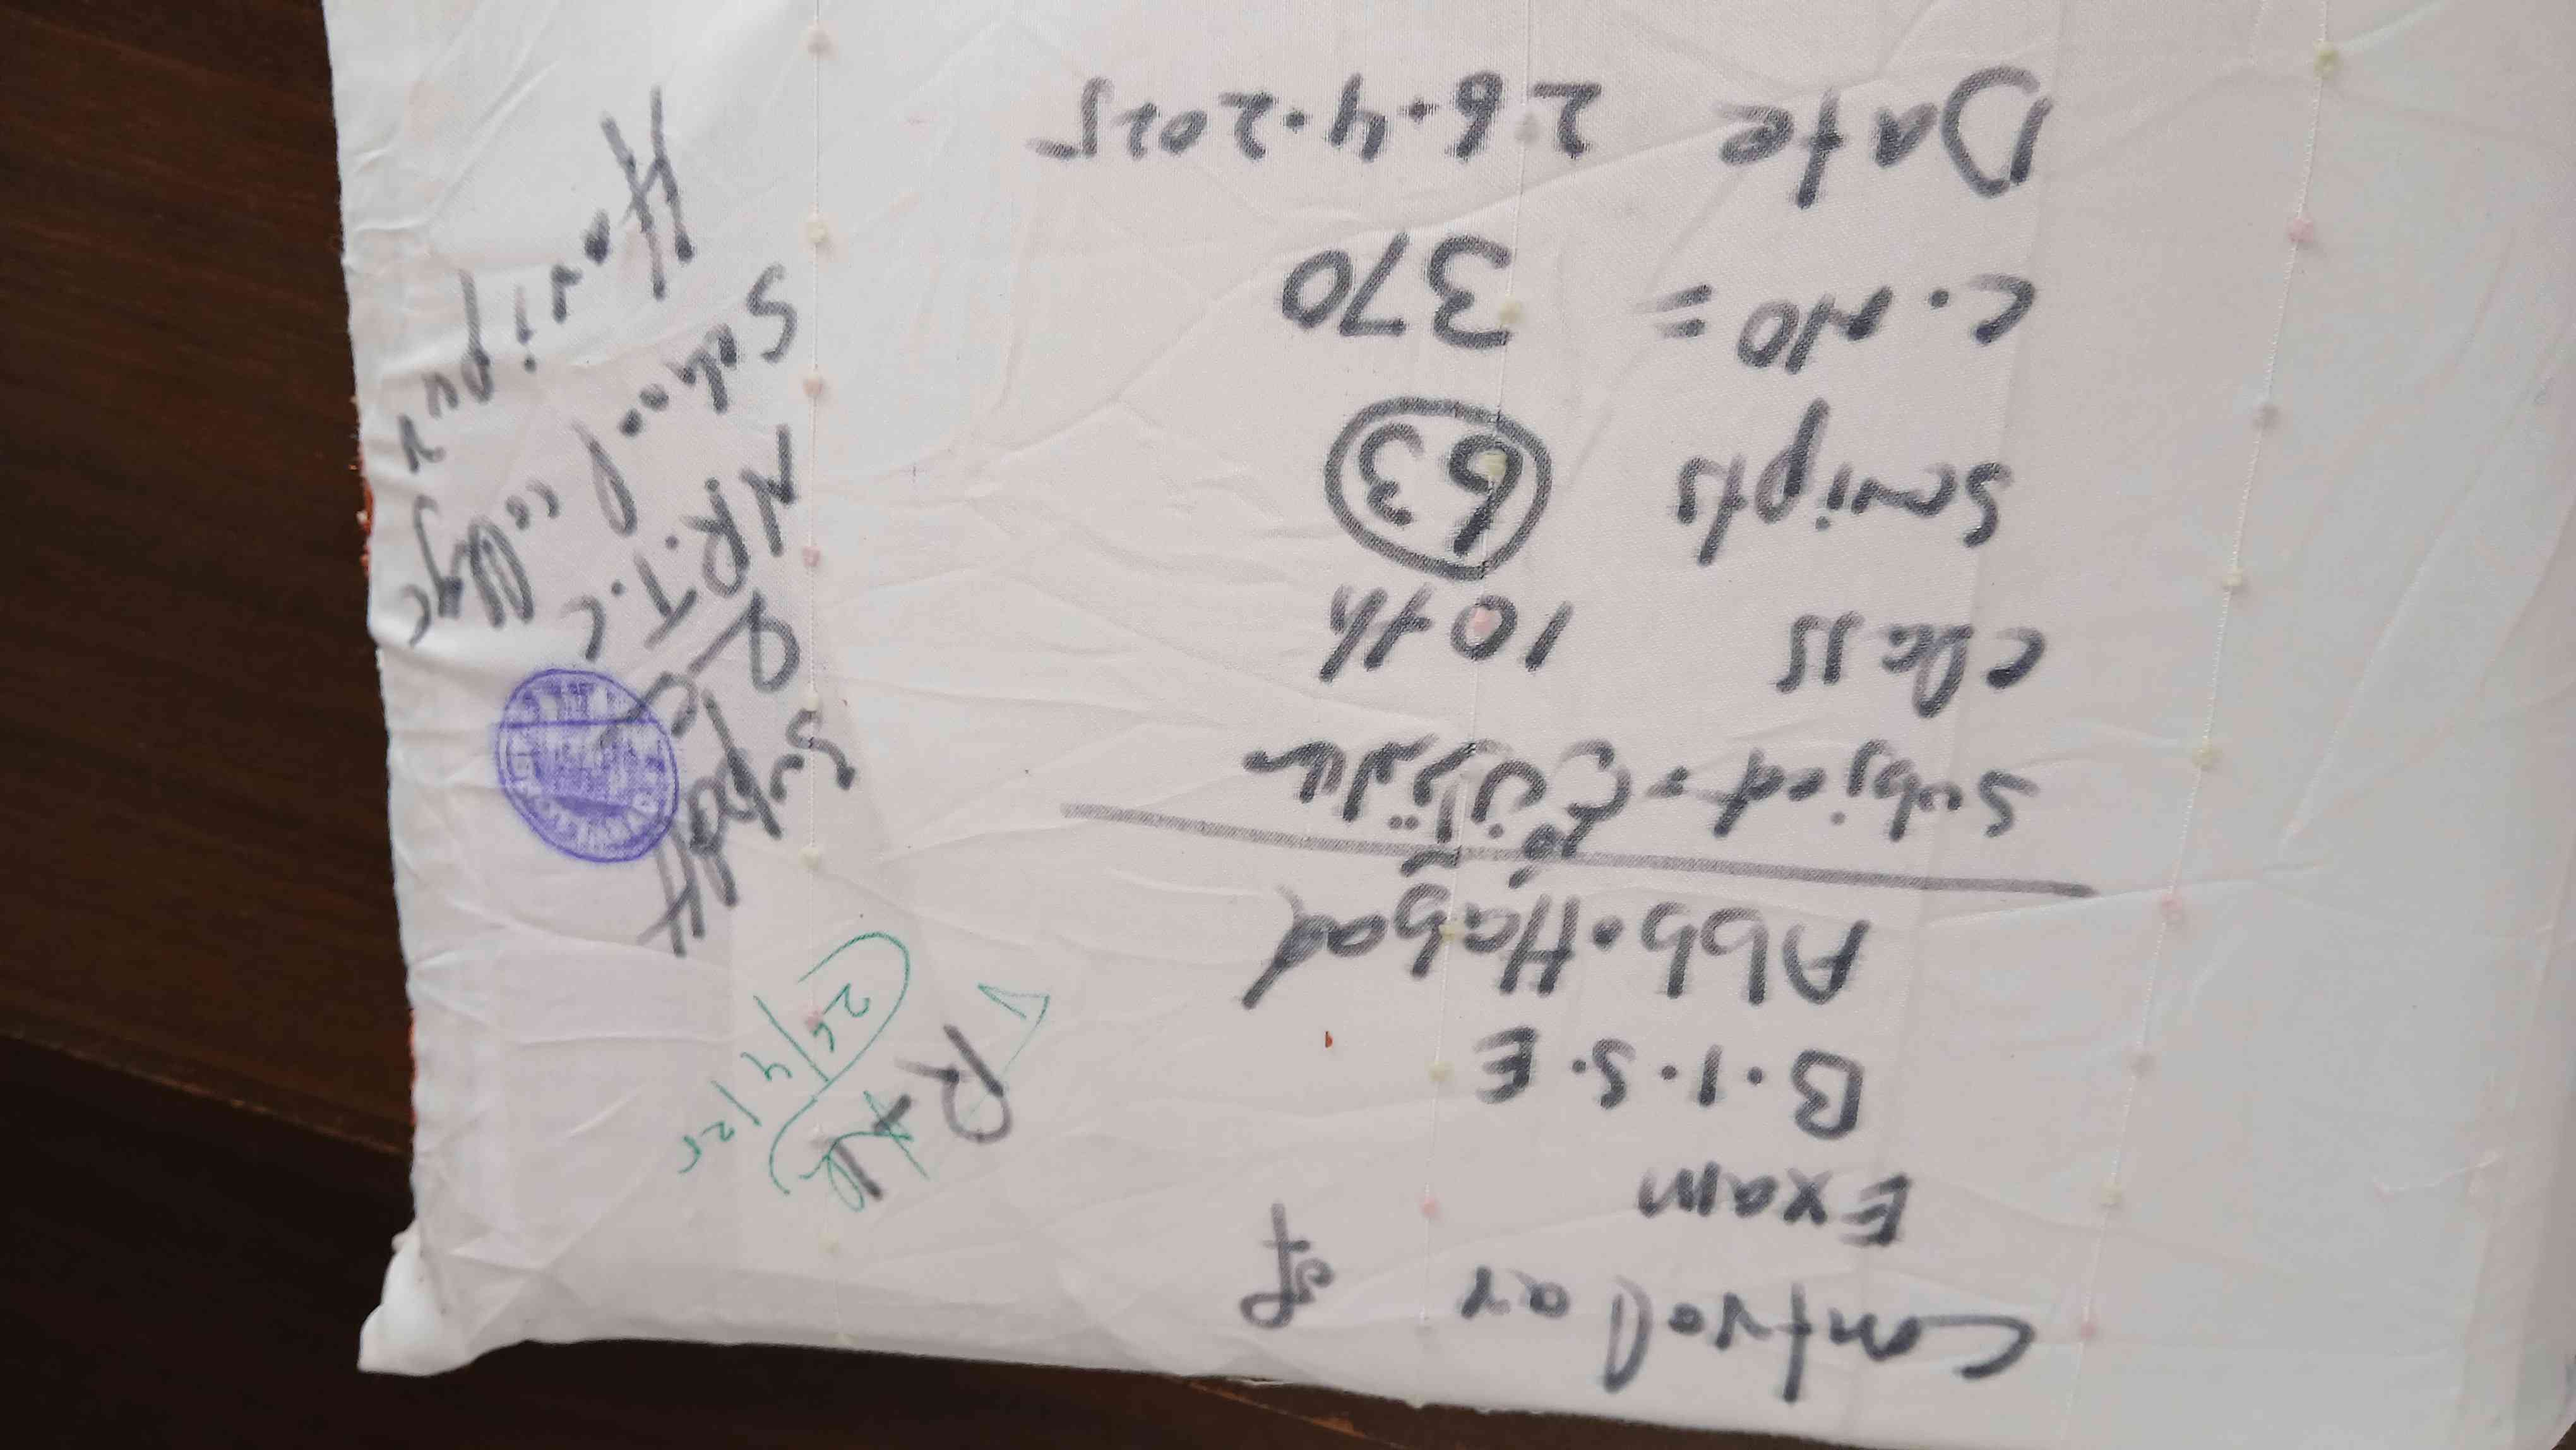 Controlar of
Exam
B.I.S.E
Abb.Habad
Subject → مطالعہ قرآن
class 10th
Scripts 63
C.NO = 370
Date 26.4.2025
26/4/25
Supdtt
N.R.T.C
School college
Haripur